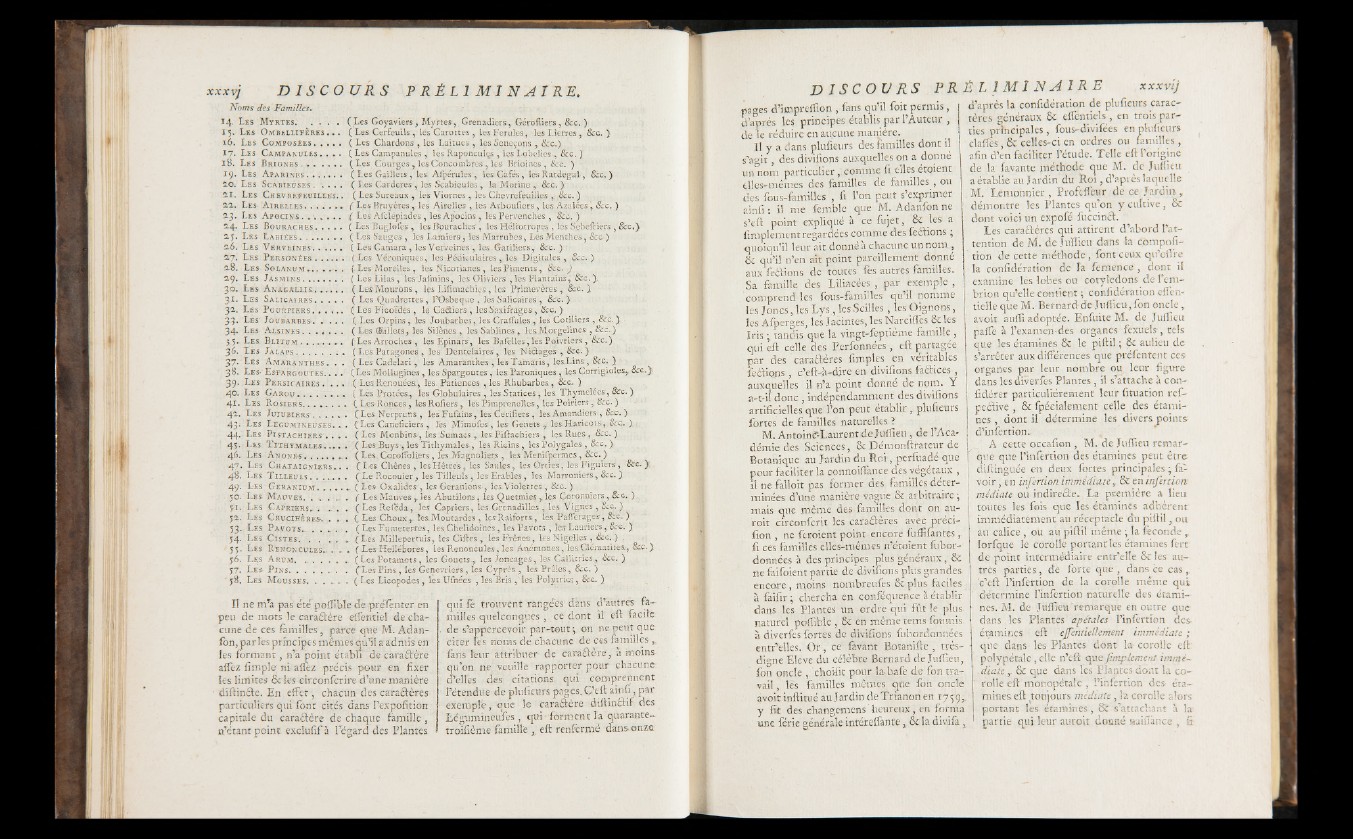 xxxvj DISCOURS PRÉLIMINAIRE.
Noms des Familles.
14. LES MYRTES. . . . . ( Les Goyaviers, Myrtes, Grenadiers, Gérofliers, &c. )
15. LES OMBELLIFÈRES... ( Les Cerfeuils, les Carottes, les Ferules, les Lierres, &c. )
16. LES COMPOSÉES..... ( Les Chardons, les Laitues, les Seneçons, &c.)
17. LES CAMPANULES.... ( Les Campanules, les Raponculs, les Lobelies, &c. )
18. LES BRIONES........ ( Les Courges, les Concombres, les Briones, &c. )
19. LES APARINES....... ( Les Gaillets, les Aspérules, les Cafés, les Kardegal, &c. )
20. LES SCABIEUSES. .... ( Les Carderes, les Scabieuses, la Morine, &c. )
21. LES CHEVREFEUILLES.. ( Les Sureaux, les Viornes, les Chevrefeuilles, &c. )
22. LES AIRELLES....... ( Les Bruyères, les Airelles, les Arbousiers, les Azalées, &c. )
23. LES APOCINS........ ( Les Asclepiades, les Apocins, les Pervenches, &c. )
24. LES BOURACHES...... ( Les Buglosses, les Bouraches, les Héliotropes, les Sebestiers, &c.)
25. LES LABIÉES........ ( Les Sauges, les Lamiers, les Marrubes, Les Menthes, &c.)
26. LES VERVEINES...... ( Les Camara, les Verveines, les Gatiliers, &c. )
27. LES PERSONÉES...... ( Les Véroniques, les Pédiculaires, les Digitales, &c. )
28. LES SOLANUM....... ( Les Morelles, les Nicotianes, les Piments, &c. )
29. LES JASMINS........ ( Les Lilas, les Jasmins, les Oliviers, les Plantains, &c. )
30. LES ANAGALLIS...... ( Les Mourons, les Lisimachies, les Primevères, &c. )
31. LES SALICAIRES..... ( Les Quadrettes, l'Osbeque, les Salicaires, &c. )
32. LES POURPIERS...... ( Les Ficoïdes, la Cactiers, les Saxifrages, &c. )
33. LES JOUBARBES. .... ( Les Orpins, les Joubarbes, les Crassules, les Cotiliers, &c. )
34. LES ALSINES. ....... ( Les Œillets, les Silènes, les Sablines, les Morgelines, &c.)
35. LES BLITUM........ ( Les Arroches, les Epinars, les Baselles, les Poivriers, &c. )
36. LES JALAPS......... ( Les Patagones, les Dentelaires, les Nictages, &c. )
37. LES AMARANTHES... ( Les Cadelari, les Amaranthes, les Tamaris, les Lins, &c. )
38. LES ESPARGOUTES... ( Les Mollugines, les Spargoutes, les Paroniques, les Corrigioles, &c.)
39. LES PERSICAIRES.... ( Les Renouées, les Patiences, les Rhubarbes, &c. )
40. LES GAROU......... ( Les Protées, les Globulaires, les Statices, les Thymelées, &c. )
41. LES ROSIERS........ ( Les Ronces, les Rosiers, les Pimprenelles, les Poiriers, &c. )
42. LES JUJUBIERS....... ( Les Nerpruns, les Fusains, les Cerisiers, les Amandiers, &c. )
43. LES LEGUMINEUSES... ( Les Caneficiers, les Mimoses, les Genets, les Haricots, &c. )
44. LES PISTACHIERS .... ( Les Monbins, les Sumacs, les Pistachiers, les Rues, &c. )
45. LES TITHYMALES..... ( Les Buys, les Tithymales, les Ricins, les Polygales, &c. )
46. LES ANONES........ ( Les Corossoliers, les Magnoliers, les Menispermes, &c. )
47. LES CHATAIGNIERS... ( Les Chênes, les Hêtres, les Saules, les Orties, les Figuiers, &c. )
48. LES TILLEULS....... ( Le Rocouier, les Tilleuls, les Erables, les Marroniers, &c. )
49. LES GERANIUM...... ( Les Oxalides, les Geranions, les Violettes, &c. )
50. LES MAUVES. ...... ( Les Mauves, les Abutilons, les Quetmies, les Cotonniers, &c. )
51. LES CAPRIERS. .... ( Les Réséda, les Capriers, les Grenadilles, les Vignes, &c. )
52. LES CRUCIFÈRES. .... ( Les Choux, les Moutardes, les Raiforts, les Passerages, &c. )
53. LES PAVOTS. ...... ( Les Fumeterres, les Chelidoines, les Pavots, les Lauriers, &c. )
54. LES CISTES. ...... ( Les Millepertuis, les Cistes, les Frênes, les Nigelles, &c. )
55. LES RENONCULES. ... ( Les Hellébores, les Renoncules, les Anémones, les Clématites, &c. )
56. LES ARUM. ....... ( Les Potamets, les Gouets, les Joncages, les Callitrics, &c. )
57. LES PINS. ........ ( Les Pins, les Genevriers, les Cyprès, les Prêles, &c. )
58. LES MOUSSES. ...... ( Les Licopodes, les Usnées, les Bris, les Polytrics, &c. )
Il ne m'a pas été possible de présenter en
peu de mots le caractère essentiel de cha-
cune de ces familles, parce que M. Adan-
son, par les principes mêmes qu'il a admis en
les formant, n'a point établi de caractère
assez simple ni assez précis pour en fixer
les limites & les circonscrire d'une manière
distincte. En effet, chacun des caractères
particuliers qui sont cités dans l'exposition
capitale du caractère de chaque famille,
n'étant point exclusif à l'égard des Plantes
qui se trouvent rangées dans d'autres fa-
milles quelconques, ce dont il est facile
de s'appercevoir par-tout; on ne peut que
citer les noms de chacune de ces familles,
sans leur attribuer de caractère, à moins
qu'on ne veuille rapporter pour chacune
d'elles des citations qui comprennent
l'étendue de plusieurs pages. C'est ainsi, par
exemple, que le caractère distinctif des
Légumineuses, qui forment la quarante-
troisième famille, est renfermé dans onze
DISCOURS PRÉLIMINAIRE xxxvij
pages d'impression, sans qu'il soit permis,
d'après les principes établis par l'Auteur,
de le réduire en aucune manière.
Il y a dans plusieurs des familles dont il
s'agit, des divisions auxquelles on a donné
un nom particulier, comme si elles étoient
elles-mêmes des familles de familles, ou
des sous-familles, si l'on peut s'exprimer
ainsi: il me semble que M. Adanson ne
s'est point expliqué à ce sujet, & les a
simplement regardées comme des sections;
quoiqu'il leur ait donné à chacune un nom,
& qu'il n'en ait point pareillement donné
aux sections de toutes ses autres familles.
Sa famille des Liliacées, par exemple,
comprend les sous-familles qu'il nomme
les Joncs, les Lys, les Scilles, les Oignons,
les Asperges, les Jacintes, les Narcisses & les
Iris; tandis que la vingt-septième famille,
qui est celle des Personnées, est partagée
par des caractères simples en véritables
sections, c'est-à-dire en divisions factices,
auxquelles il n'a point donné de nom. Y
a-t-il donc, indépendamment des divisions
artificielles que l'on peut établir, plusieurs
sortes de familles naturelles?
M. Antoine-Laurent de Jussieu, de l'Aca-
démie des Sciences, & Démonstrateur de
Botanique au Jardin du Roi, persuadé que
pour faciliter la connoissance des végétaux,
il ne falloit pas former des familles déter-
minées d'une manière vague & arbitraire;
mais que même des familles dont on au-
roit circonscrit les caractères avec préci-
sion, ne seroient point encore suffisantes,
si ces familles elles-mêmes n'étoient subor-
données à des principes plus généraux, &
ne faisoient partie de divisions plus grandes
encore, moins nombreuses & plus faciles
à saisir; chercha en conséquence à établir
dans les Plantes un ordre qui fût le plus
naturel possible, & en même tems soumis
à diverses sortes de divisions subordonnées
entr'elles. Or, ce savant Botaniste, très-
digne Eleve du célèbre Bernard de Jussieu,
son oncle, choisit pour la base de son tra-
vail, les familles mêmes que son oncle
avoit institué au Jardin de Trianon en 1759,
y fit des changemens heureux, en forma
une série générale intéressante, & la divisa,
d'après la considération de plusieurs carac-
tères généraux & essentiels, en trois par-
ties principales, sous-divisées en plusieurs
classes, & celles-ci en ordres ou familles,
afin d'en faciliter l'étude. Telle est l'origine
de la savante méthode que M. de Jussieu
a établie au Jardin du Roi, d'après laquelle
M. Lemonnier, Professeur de ce Jardin,
démontre les Plantes qu'on y cultive, &
dont voici un exposé succinct.
Les caractères qui attirent d'abord l'at-
tention de M. de Jussieu dans la composi-
tion de cette méthode, sont ceux qu'offre
la considération de la semence, dont il
examine les lobes ou cotyledons de l'em-
brion qu'elle contient; considération essen-
tielle que M. Bernard de Jussieu, son oncle,
avoit aussi adoptée. Ensuite M. de Jussieu
passe à l'examen des organes sexuels, tels
que les étamines & le pistil; & au lieu de
s'arrêter aux différences que présentent ces
organes par leur nombre ou leur figure
dans les diverses Plantes, il s'attache à con-
sidérer particulièrement leur situation res-
pective, & spécialement celle des étami-
nes, dont il détermine les divers points
d'insertion.
A cette occasion, M. de Jussieu remar-
que que l'insertion des étamines peut être
distinguée en deux sortes principales; sa-
voir, en insertion immédiate, & en insertion
médiate ou indirecte. La première a lieu
toutes les fois que les étamines adhèrent
immédiatement au réceptacle du pistil, ou
au calice, ou au pistil même; la seconde,
lorsque le corolle portant les étamines sert
de point intermédiaire entr'elle & les au-
tres parties, de sorte que, dans ce cas,
c'est l'insertion de la corolle même qui
détermine l'insertion naturelle des étami-
nes. M. de Jussieu remarque en outre que
dans les Plantes apétales l'insertion des
étamines est essentiellement immédiate;
que dans les Plantes dont la corolle est
polypétale, elle n'est que simplement immé-
diate, & que dans les Plantes dont la co-
rolle est monopétale, l'insertion des éta-
mines est toujours médiate, la corolle alors
portant les étamines, & s'attachant à la
partie qui leur auroit donné naissance, si